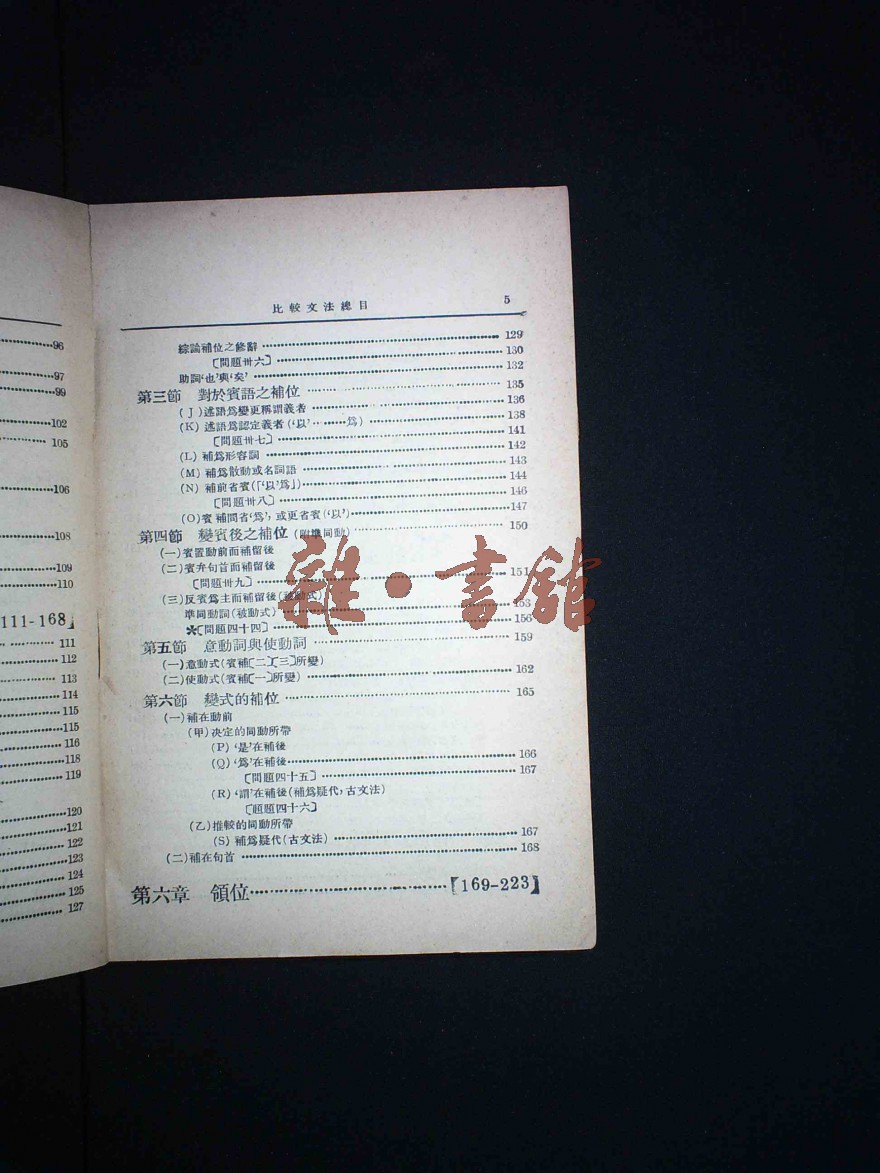 96
97
99
102
105
106
108
109
110
111-168】
111
112
113
114
115
115
116
118
119
120
121
122
123
124
125
127
比較文法總目 5
綜論補位之修辭 129
〔問題卅六〕 130
助詞‘也’與‘矣’ 132
第三節 對於賓語之補位 135
(J)述語爲變更稱謂義者 136
(K)述語爲認定義者(‘以’……爲) 138
〔問題卅七〕 141
(L)補爲形容詞 142
(M)補爲散動或名詞語 143
(N)補前省賓(「‘以’爲」) 144
〔問題卅八〕 146
(O)賓補間省‘爲’,或更省賓(‘以’) 147
第四節 變賓後之補位(附準同動) 150
(一)賓置動前而補留後
(二)賓弁句首而補留後 151
〔問題卅九〕
(三)反賓爲主而補留後(被動式) 153
準同動詞(被動式) 156
*〔問題四十四〕
第五節 意動詞與使動詞 159
(一)意動式(賓補〔二〕〔三〕所變)
(二)使動式(賓補〔一〕所變) 162
第六節 變式的補位 165
(一)補在動前
(甲)决定的同動所帶
(P)‘是’在補後
(Q)‘爲’在補後 166
〔問題四十五〕 167
(R)‘謂’在補後(補爲疑代,古文法)
〔問題四十六〕
(乙)推較的同動所帶
(S)補爲疑代(古文法) 167
(二)補在句首 168
第六章 領位 【169-223】
雜·書館